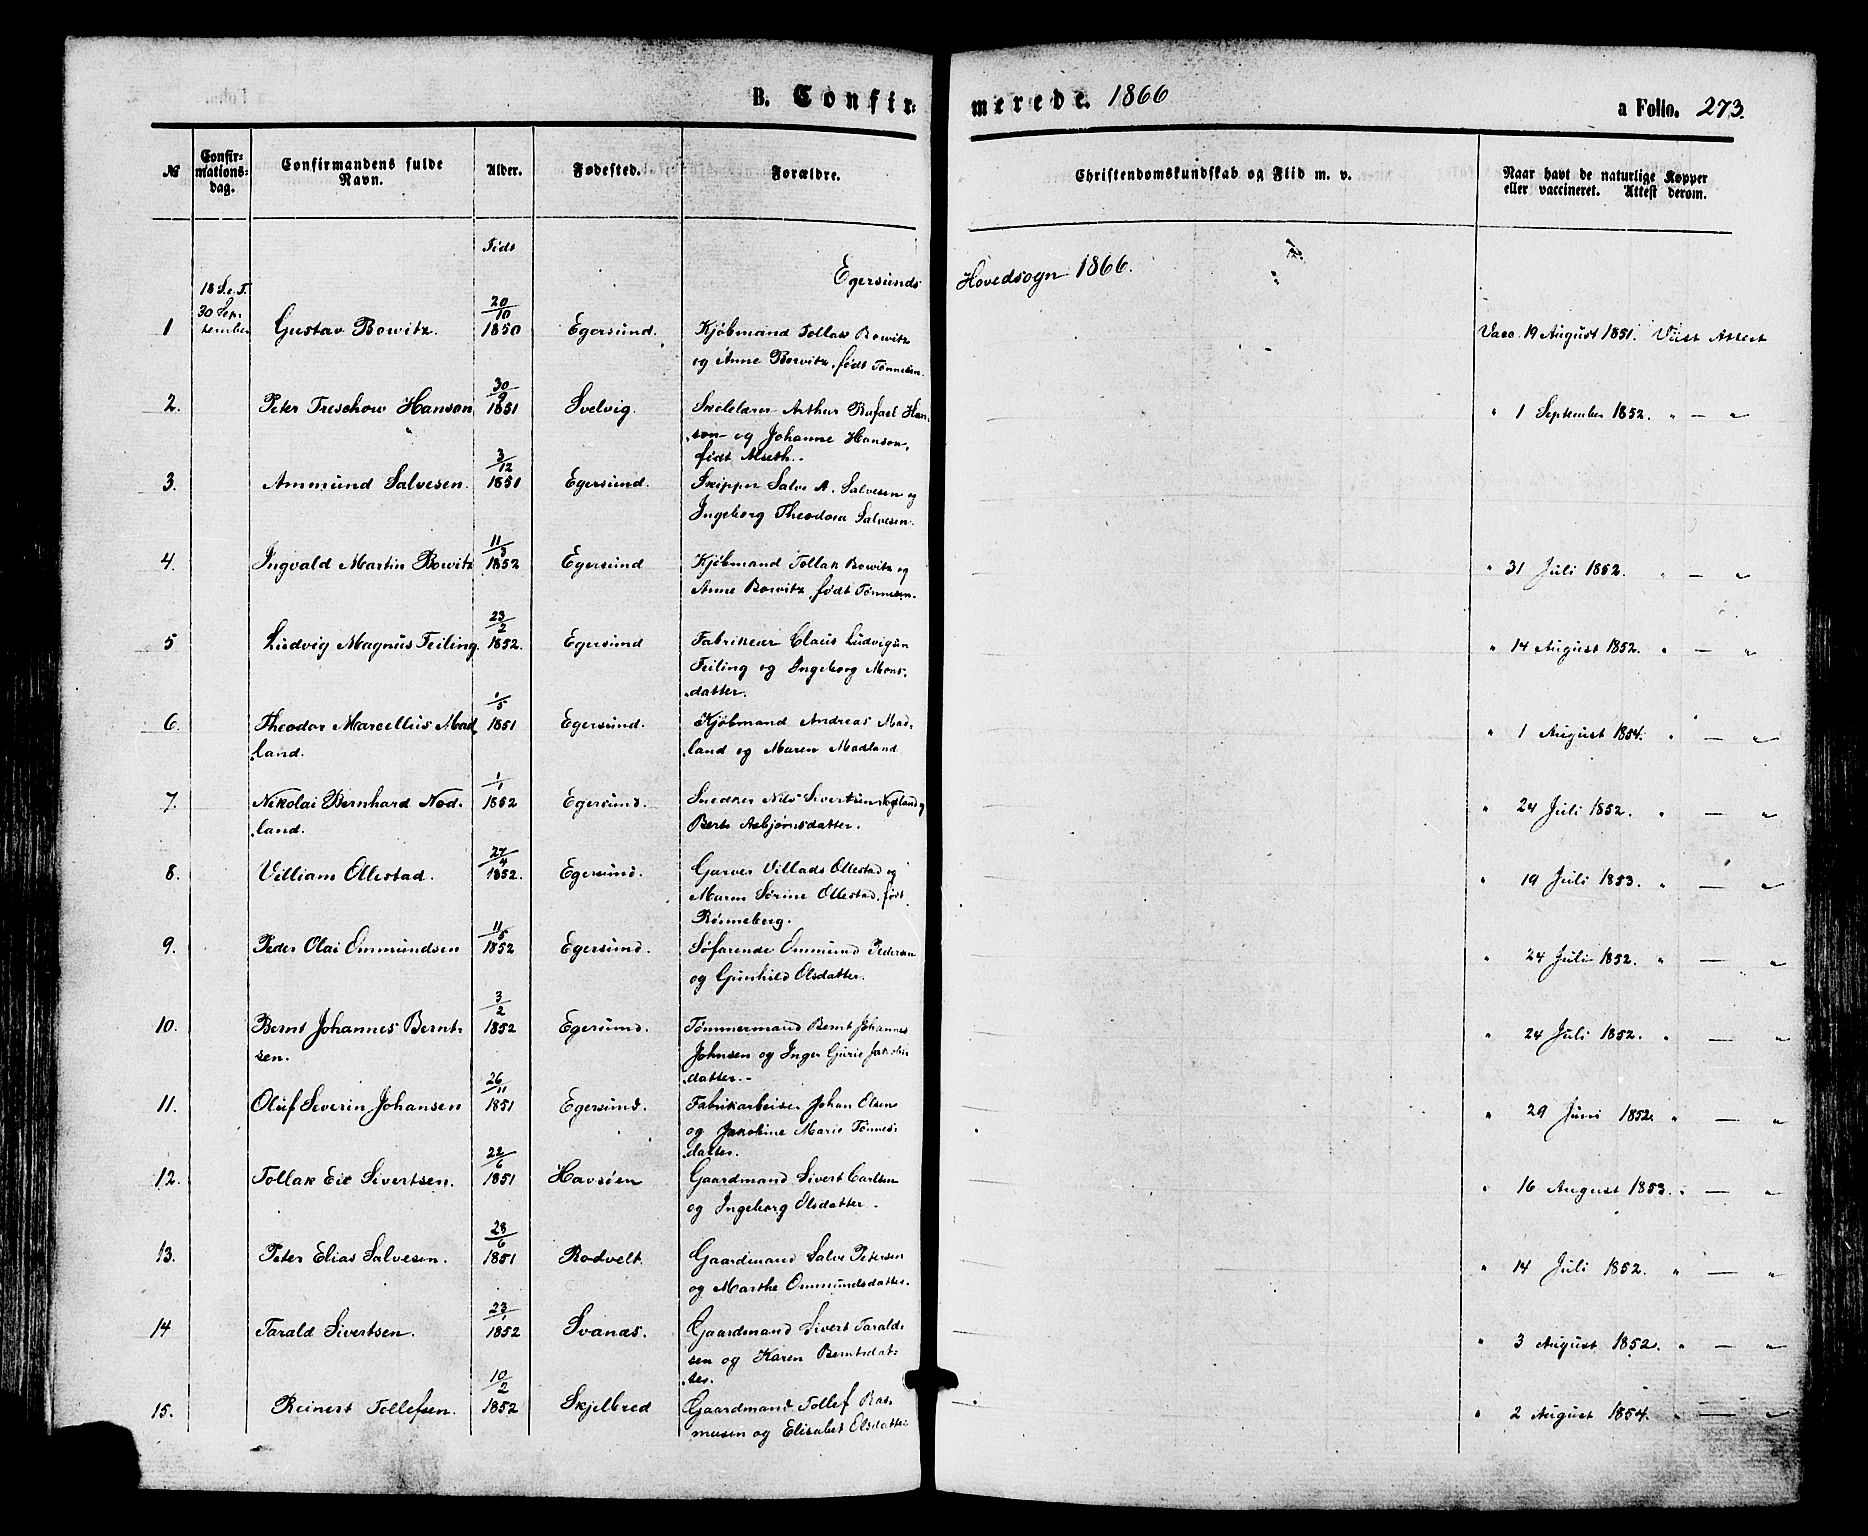 B. Confir=
merede. 1866
a Folio. 273.
№
Confir=
mations=
dag.
Confirmandens fulde
Navn.
Alder.
Fødested.
Forældre.
Christendomskundskab og Flid m. v.
Naar havt de naturlige Kopper
eller vaccineret. Attest derom.
Født
Egersunds Hovedsogn 1866.
18 S. e. T.
30 Sep-
tember
1 Gustav Bowitz. 20/10 1850 Egersund. Kjøbmand Tollak Bowitz
og Anne Bowitz, født Tønnesen.
Vacc. 19 August 1851. Viist Attest
2. Peter Treschow Hanson 30/9 1851 Svelvig. Skolelærer Arthur Rafael Han-
son og Johanne Hanson,
født Alseth.
" 1 September 1852. " — "
3. Ammund Salvesen. 3/12 1851 Egersund. Skipper Salve A. Salvesen og
Ingeborg Theodora Salvesen.
4. Ingvald Martin Bowitz 11/3 1852 Egersund Kjøbmand Tollak Bowitz og
Anne Bowitz, født Tønnesen.
" 31 Juli 1852. " — "
5 Ludvig Magnus Feiling. 23/2 1852. Egersund Fabrikeur Claus Ludvigsen
Feiling og Ingeborg Mons-
datter.
" 14 August 1852. " — "
6. Theodor Marcellius Mad- 1/5 1851 Egersund. Kjøbmand Andreas Mad-
land. land og Maren Madland
" 1 August 1854. " — "
7. Nikolai Bernhard Nod- 1/1 1852 Egersund. Snedker Nils Sivertsen Nodland og
land. Berte Asbjørnsdatter.
" 24 Juli 1852. " — "
8. Villiam Ollestad. 27/4 1852. Egersund. Garver Villads Ollestad og
Maren Sørine Ollestad, født
Rønneberg.
" 19 Juli 1853. " — "
9. Peder Olai Ommundsen 11/5 1852 Egersund. Søfarende Ommund Pedersen
og Gunhild Olsdatter.
" 24 Juli 1852. " — "
10. Bernt Johannes Bernt- 3/2 1852 Egersund. Tømmermand Bernt Johannes
sen. Johnsen og Inger Gurie Jakobs-
datter.
" 24 Juli 1852. " — "
11. Oluf Severin Johansen 26/11 1851 Egersund. Fabrikarbeider Johan Olsen
og Jakobine Marie Tønnes-
datter.
" 29 Juni 1852. " — "
12. Tollak Eie Sivertsen. 22/6 1851 Havsøen Gaardmand Sivert Carlsen
og Ingeborg Olsdatter.
" 16 August 1853. " — "
13. Peter Elias Salvesen. 23/6 1851 Rodvelt. Gaardmand Salve Petersen
og Marthe Ommundsdatter.
" 14 Juli 1852. " — "
14 Tarald Sivertsen. 23/1 1852 Svanæs. Gaardmand Sivert Tarald-
sen og Karen Berntsdat-
ter.
" 3 August 1852. " — "
15. Reinert Tollefsen. 10/2 1852 Skjelbred Gaardmand Tollef Ras-
musen og Elisabet Olsdatter
" 2 August 1854. " — "